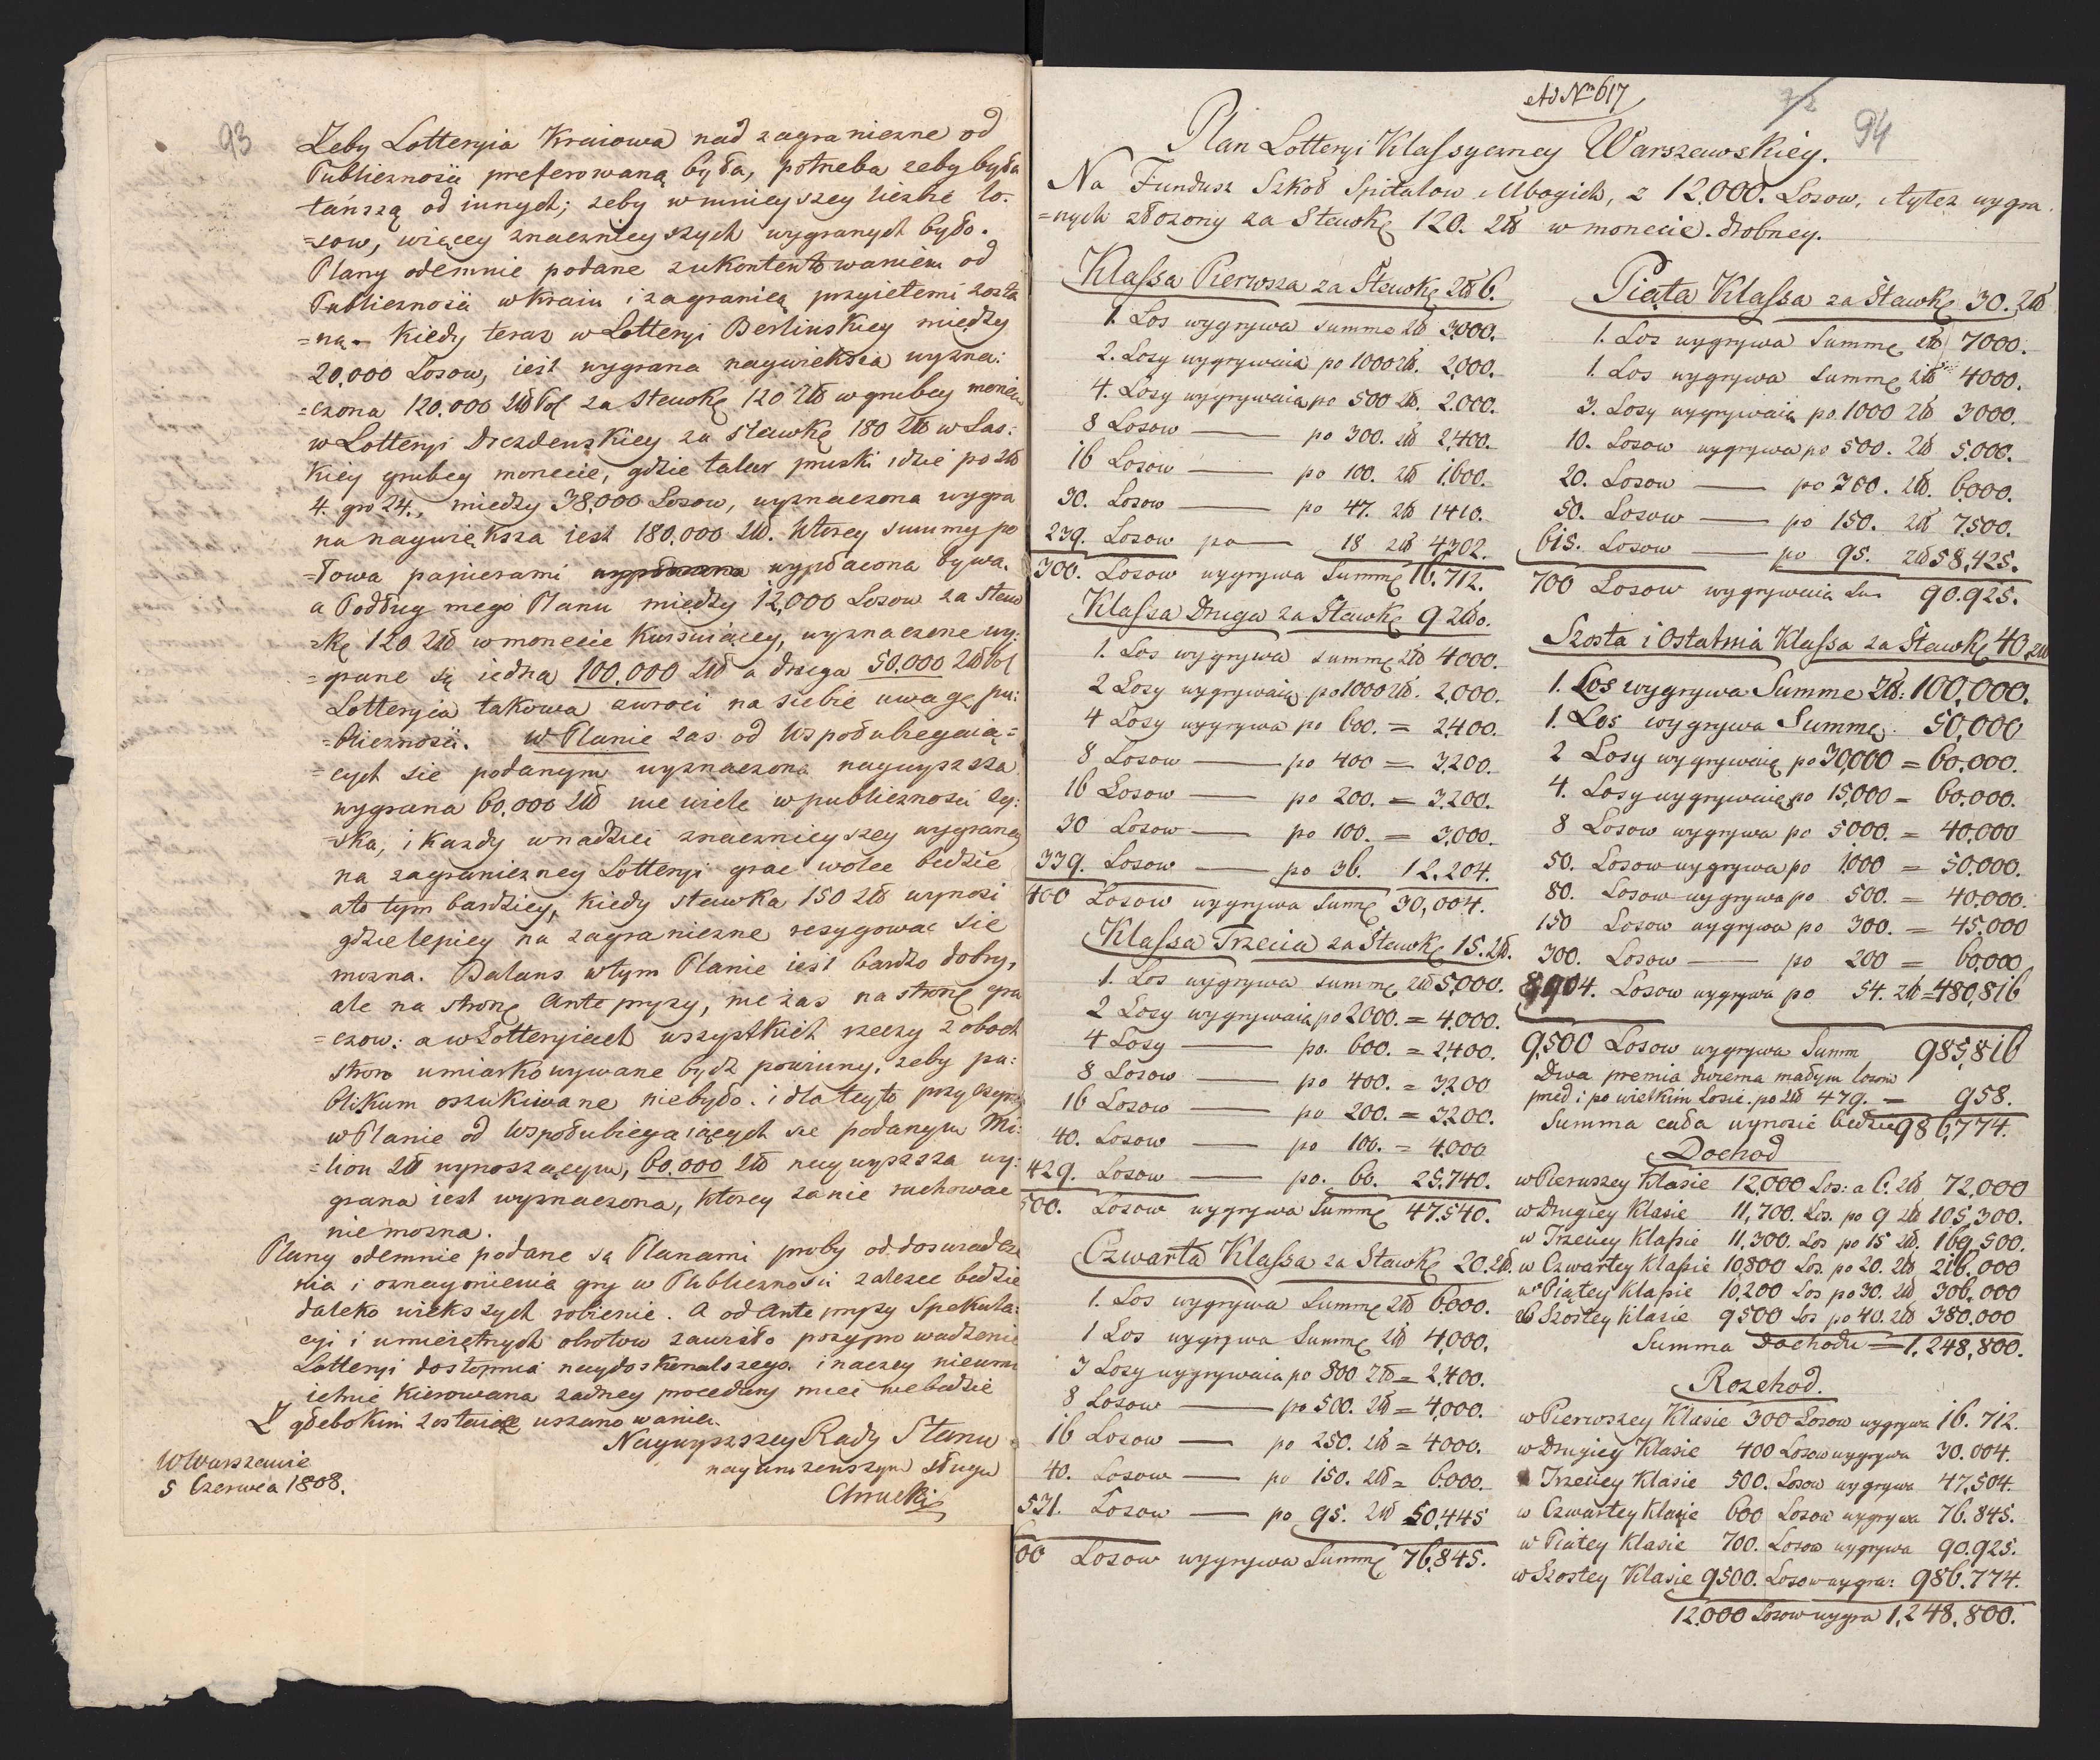 93
Żeby Lotteryia Kraiowa nad zagraniczne od
Publicznosii preferowaną była, potrzeba zeby była
tańszą od innych; zeby w mnieyszey liczbie lo-
=sow, więcey znacznieyszych wygranych było.
Plany odemnie podane z ukontentowaniem od
Publicznosii w kraiu i zagranicą przyietemi zosta
=ną. Kiedy teraz w Lotteryi Berlinskiey między
20,000 Losow, iest wygrana naywieksza wyzna:
=czona 120.000 Złł Pol za Stawkę 120 Złł w grubey monecie
w Lotteryi Drezdenskiey za stawkę 180 Złł w Sas:
kiey grubey monecie, gdzie talar pruski idzie po Złł
4. gro 24., miedzy 38,000 Losow, wyznaczona wygra
na naywiększa iest 180.000 Złł. Ktorey summy po
=łowa papierami wypłacona bywa.
a Podług mego Planu między 12,000 Losow za staw
=kę 120 Złł w monecie kursuiącey, wyznaczone wy:
=grane są iedna 100.000 Złł a druga 50.000 Złł Pol
Lotteryia takowa zwroci na siebie uwagę pu:
=blicznosii. w Planie zas od Wspołubiegaią=
=cych sie podanym wyznaczona naywyzsza
wygrana 60,000 Złł nie wiele w publicznosci zy:
=ska, i kazdy w nadziei znacznieyszey wygraney
na zagraniczney Lotteryi grac wolec bedzie
ato tym bardziey, kiedy stawka 150 Złł wynosi
gdzie lepiey na zagraniczne resygowac sie
mozna. Balans w tym Planie iest bardzo dobry,
ale na stronę Antepryzy, nie zas na stronę gra
=czow: a w Lotteryiach wszystkich rzeczy z oboch
stron umiarkowywane bydz powinny, zeby pu:
blikum oszukiwane niebyło. i dla tey to przyczyny
w Planie od Wspołubiegaiących sie podanym Mi:
=lion Złł wynoszącym, 60.000 Złł naywyzsza wy:
grana iest wyznaczona, ktorey zanie rachowac
nie mozna.
Plany odemnie podane są Planami proby od doswiadcze
nia i oznaymienia gry w Publicznosci zalezec bedzie
daleko wiekszych robienie. A od Antepryzy Spekula:
cyi i umieiętnych obrotow zawisło przyprowadzenie
Lotteryi dostopnia naydoskonalszego. inaczey nieumi
ietnie kierowana zadney procedury miec nie bedzie
Z głebokim zostaię uszanowaniem
Naywyzszey Rady Stanu
nayunizenszym sługa
WWarszawie
5 Czerwca 1808.
Ad Nrm 617
72
94
Plan Lotteryi Klassyczney Warszawskiey.
Na Fundusz Szkoł Spitalow i Ubogich, z 12.000. Losow, i tylez wygra
=nych złozony za Stawkę 120. Złł w monecie drobney.
Klassa Pierwsza za Stawkę Złł 6.
1. Los wygrywa summę Złł 3000.
2. Losy wygrywaią po 1000 Złł. 2,000.
4. Losy wygrywaią po 500 Złł. 2.000.
8 Losow — po 300. Złł 2,400.
16 Losow — po 100. Złł 1,600.
30. Losow — po 47. Złł 1410.
239. Losow po — 18 Złł 4302.
300. Losow wygrywa Summę 16,712.
Klassa Druga za Stawkę 9 Złło.
1. Los wygrywa summę Złł 4000.
2 Losy wygrywaią po 1000 Złł. 2,000.
4 Losy wygrywa po 600. = 2400.
8 Losow — po 400 = 3,200.
16 Losow — po 200. = 3,200.
30 Losow — po 100. = 3,000.
339. Losow — po 36. 12,204.
400 Losow wygrywa Summę 30,004.
Klassa Trzecia za Stawkę 15. Złł.
1. Los wygrywa summę Złł 5,000.
2 Losy wygrywaią po 2000. = 4,000.
4 Losy — po. 600. = 2,400.
8 Losow — po 400. = 3,200
16 Losow — po 200. = 3,200.
40. Losow — po 100. = 4,000
429. Losow — po. 60. 25,740.
500. Losow wygrywa Summę 47.540.
Czwarta Klassa za Stawkę 20. Złł.
1. Los wygrywa Summę Złł 6000.
1 Los wygrywa Summę Złł 4,000.
3 Losy wygrywaia po 800 Złł = 2,400.
8 Losow — po 500. Złł = 4,000.
16 Losow — po 250. Złł = 4000.
40. Losow — po 150. Złł = 6000.
531. Losow — po 95. Złł 50,445
00 Losow wygrywa Summę 76,845.
Piąta Klassa za Stawkę 30. Złł
1. Los wygrywa Summę Złł 7000.
1. Los wygrywa Summę Złł 4000.
3. Losy wygrywaią po. 1000 Złł 3000.
10. Losow wygrywa po 500. Złł 5,000.
20. Losow — po 300. Złł. 6000.
50. Losow — po 150. Złł 7,500.
615. Losow — po 95. Złł 58,425.
700 Losow wygrywaia Su 90.925.
Szosta i Ostatnia Klassa za Stawkę 40. Złł
1. Los wygrywa Summe Złł: 100,000.
1. Los wygrywa Summę. 50,000
2 Losy wygrywaią po 30,000 = 60,000.
4. Losy wygrywaią po 15,000 = 60.000.
8 Losow wygrywa po 5000. = 40,000
50. Losow wygrywa po 1000 = 50.000.
80. Losow wygrywa po 500. = 40,000.
150 Losow wygrywa po 300. = 45.000
300. Losow — po 200 = 60,000
8,904. Losow wygrywa po 54. Złł = 480,816
9,500 Losow wygrywa Summ 985,816
Dwa premia dwiema małym losom
przed i po wielkim Losie. po Złł 479. = 958.
Summa cała wynosic bedzie 986,774.
Dochod
w Pierwszey Klasie 12,000 Los: a 6. Złł 72,000
w Drugiey Klasie 11,700. Los. po 9 Złł 105,300.
w Trzeciey Klassie 11,300. Los po 15 Złł. 169,500.
w Czwartey Klassie 10,800 Los. po 20. Złł 216,000
w Piątey Klassie 10,200 Los po 30. Złł 306,000
w Szostey Klasie 9500 Los po 40. Złł 380.000
Summa Dochodu = 1,248,800.
Rozchod.
w Pierwszey Klasie 300 Losow wygrywa 16.712.
w Drugiey Klasie 400 Losow wygrywa 30.004.
Trzeciey Klasie 500. Losow wygrywa 47,504.
w Czwartey Klasie 600 Losow wygrywa 76.845.
w Piątey Klasie 700. Losow wygrywa 90.925.
w Szostey Klasie 9500. Losow wygra: 986.774.
12.000 Losow wygra 1,248,800.